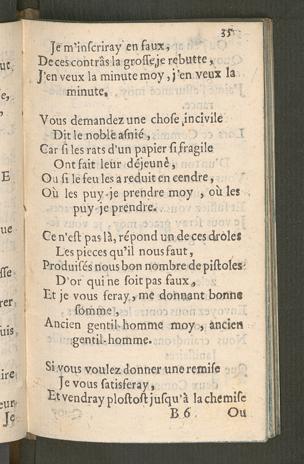 35
Je m'inscriray en faux,
De ces contrâs la grosse, je rebutte,
J'en veux la minute moy, j'en veux la
minute.
Vous demandez une chose incivile
Dit le noble asnié,
Car si les rats d'un papier si fragile
Ont fait leur déjeuné,
Ou si le feu les a reduit en cendre,
Où les puy-je prendre moy, où les
puy-je prendre.
Ce n'est pas là, répond un de ces droles
Les pieces qu'il nous faut,
Produisés nous bon nombre de pistoles
D'or qui ne soit pas faux,
Et je vous feray, me donnant bonne
somme,
Ancien gentil-homme moy, ancien
gentil-homme.
Si vous voulez donner une remise
Je vous satisferay,
Et vendray plostost jusqu'à la chemise
B 6 Ou